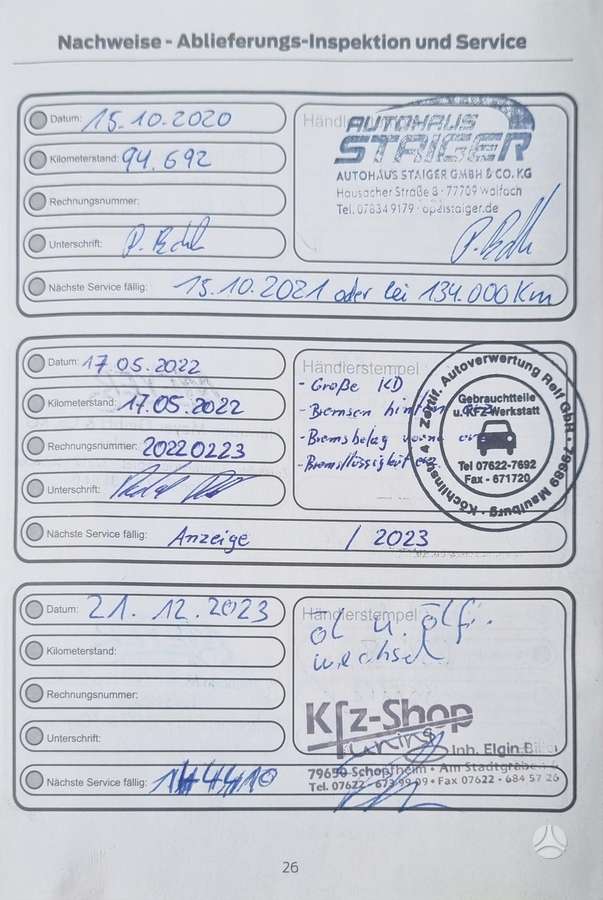 Nachweise - Ablieferungs-Inspektion und Service
Datum: 15.10.2020
Kilometerstand: 94.692
Rechnungsnummer:
Unterschrift:
AUTOHAUS
STAIGER
AUTOHAUS STAIGER GMBH & CO. KG
Hausacher Straße 8 · 77709 Wolfach
Tel. 07834 9179 · opelstaiger.de
Nächste Service fällig: 15.10.2021 oder bei 134.000 Km
Datum: 17.05.2022
Kilometerstand: 17.05.2022
Rechnungsnummer: 20220223
Unterschrift:
Händlerstempel
- Große KD
- Bremsen hinten
- Bremsbelag
- Bremsflüssigkeit
Zertif. Autoverwertung Reif GbR · 79689 Maulburg · Köchlinstr. 4
Gebrauchtteile
u. KFZ-Werkstatt
Tel 07622-7692
Fax - 671720
Nächste Service fällig: Anzeige / 2023
Datum: 21.12.2023
Kilometerstand:
Rechnungsnummer:
Unterschrift:
Händlerstempel
Öl u. Ölfi.
wechsel
Kfz-Shop
Tuning
Inh. Elgin
79650 Schopfheim · Am Stadtgraben
Tel. 07622 - 673 99 09 · Fax 07622 - 684 57 26
Nächste Service fällig:
26